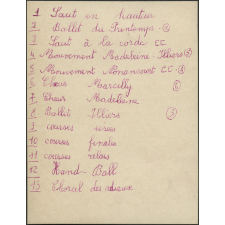 1 Saut en hauteur
2 Ballet du Printemps
3 Saut à la corde CC
4 Mouvement Madeleine Illiers
5 Mouvement Monancourt CC
6 Chœur Marcilly
7 Chœur Madeleine
8 Ballet Illiers
9 courses
10 courses finales
11 courses relais
12 Hand-Ball
13 Choral des adieux